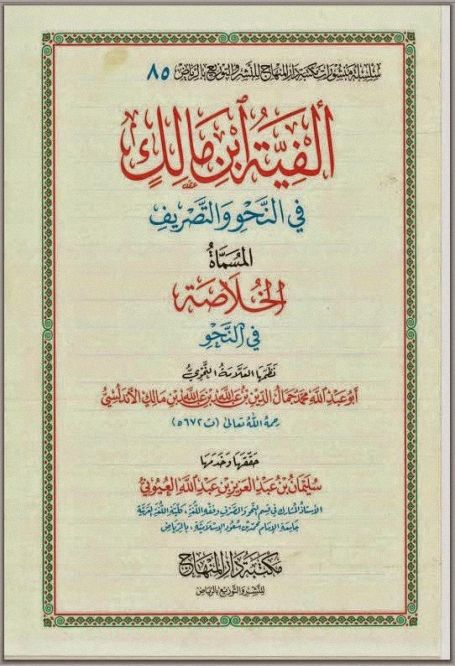 سلسلة منشورات مكتبة دار المنهاج للنشر والتوزيع بالرياض ٨٥
ألفيّة ابن مالك
في النّحو والتّصريف
المسمّاة
الخلاصة
في النّحو
نظمها العلامة النّحويّ
أبو عبد الله محمد جمال الدين بن عبد الله بن عبد الله بن مالك الأندلسي
رحمه الله تعالى (ت ٦٧٢ه)
حقّقها وخدمها
سليمان بن عبد العزيز بن عبد الله العيوني
الأستاذ المشارك في قسم النحو والصرف وفقه اللغة، كلية اللغة العربية
جامعة الإمام محمد بن سعود الإسلامية، بالرياض
مكتبة دار المنهاج
للنشر والتوزيع بالرياض